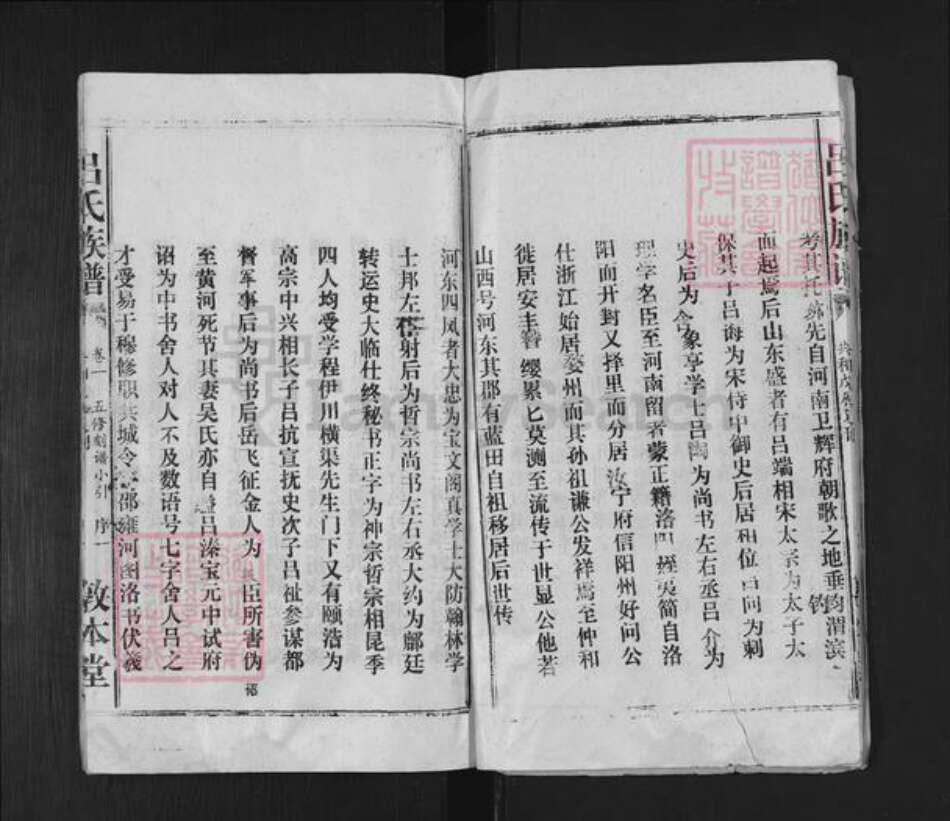 吕氏族谱
先自河南卫辉府朝歌之地垂钓渭滨
而起焉后山东盛者有吕端相宋太宗为太子太
保其子吕诲为宋侍中御史后居相位吕问为刺
史后为含象享学士吕陶为尚书左右丞吕介为
理学名臣至河南留者蒙正籍洛阳夷简自洛
阳而开封又择里而分居汝宁府信阳州好问公
仕浙江始居婺州而其孙祖谦公发祥焉至仲和
徙居安丰簪缨累匕莫测至流传于世显公他若
山西号河东其郡有蓝田自祖移居后世传
河东四凤者大忠为宝文阁真学士大防翰林学
士邦左仆射后为哲宗尚书左右丞大约为鄜廷
转运史大临仕终秘书正字为神宗哲宗相昆季
四人均受学程伊川横渠先生门下又有颐浩为
高宗中兴相长子吕抗宣抚史次子吕祉参谋都
督军事后为尚书后岳飞征金人为臣所害伪
至黄河死节其妻吴氏亦自吕溱宝元中试府
诏为中书舍人对人不及数语号七字舍人吕之
才受易于穆修职共城令邵雍河图洛书伏羲
吕氏族谱
卷一
五修刻谱小引
序一
敦本堂
FamilySearch